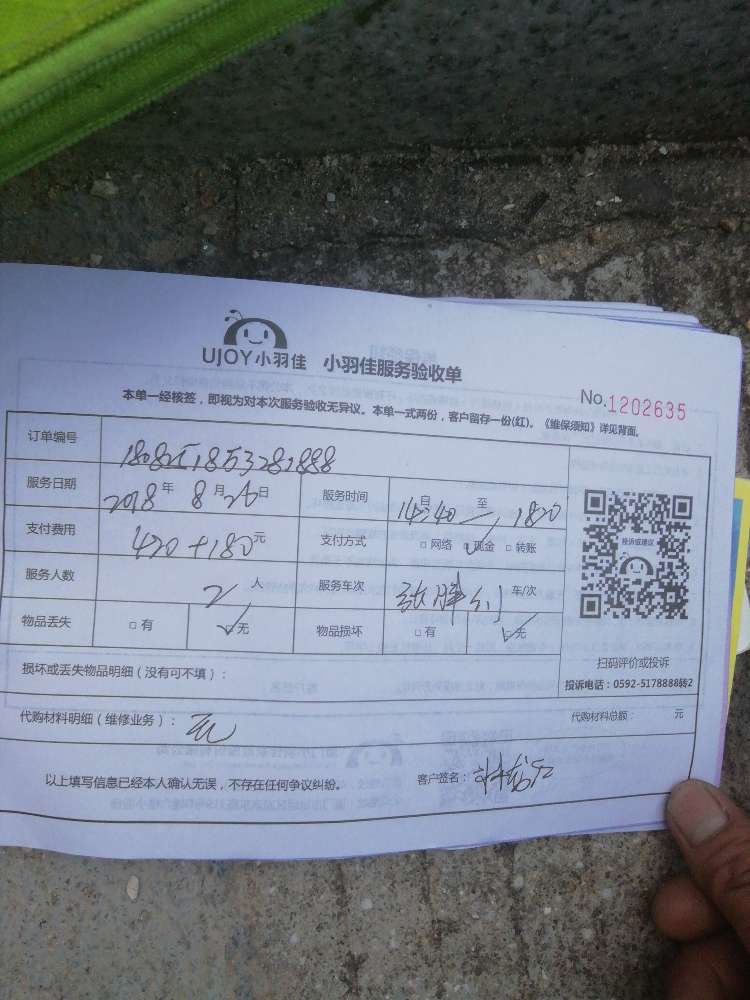 UJOY小羽佳 小羽佳服务验收单
No.1202635
本单一经核签，即视为对本次服务验收无异议。本单一式两份，客户留存一份(红)。《维保须知》详见背面。
订单编号
服务日期 2018年 8月26日 服务时间 自14:40至1820
支付费用 420+180元 支付方式 □网络 □现金 □转账
服务人数 2人 服务车次 车/次
物品丢失 □有 □无 物品损坏 □有 □无
投诉或建议
扫码评价或投诉
损坏或丢失物品明细（没有可不填）：
投诉电话：0592-5178888转2
代购材料明细（维修业务）：无 代购材料总额： 元
以上填写信息已经本人确认无误，不存在任何争议纠纷。 客户签名：